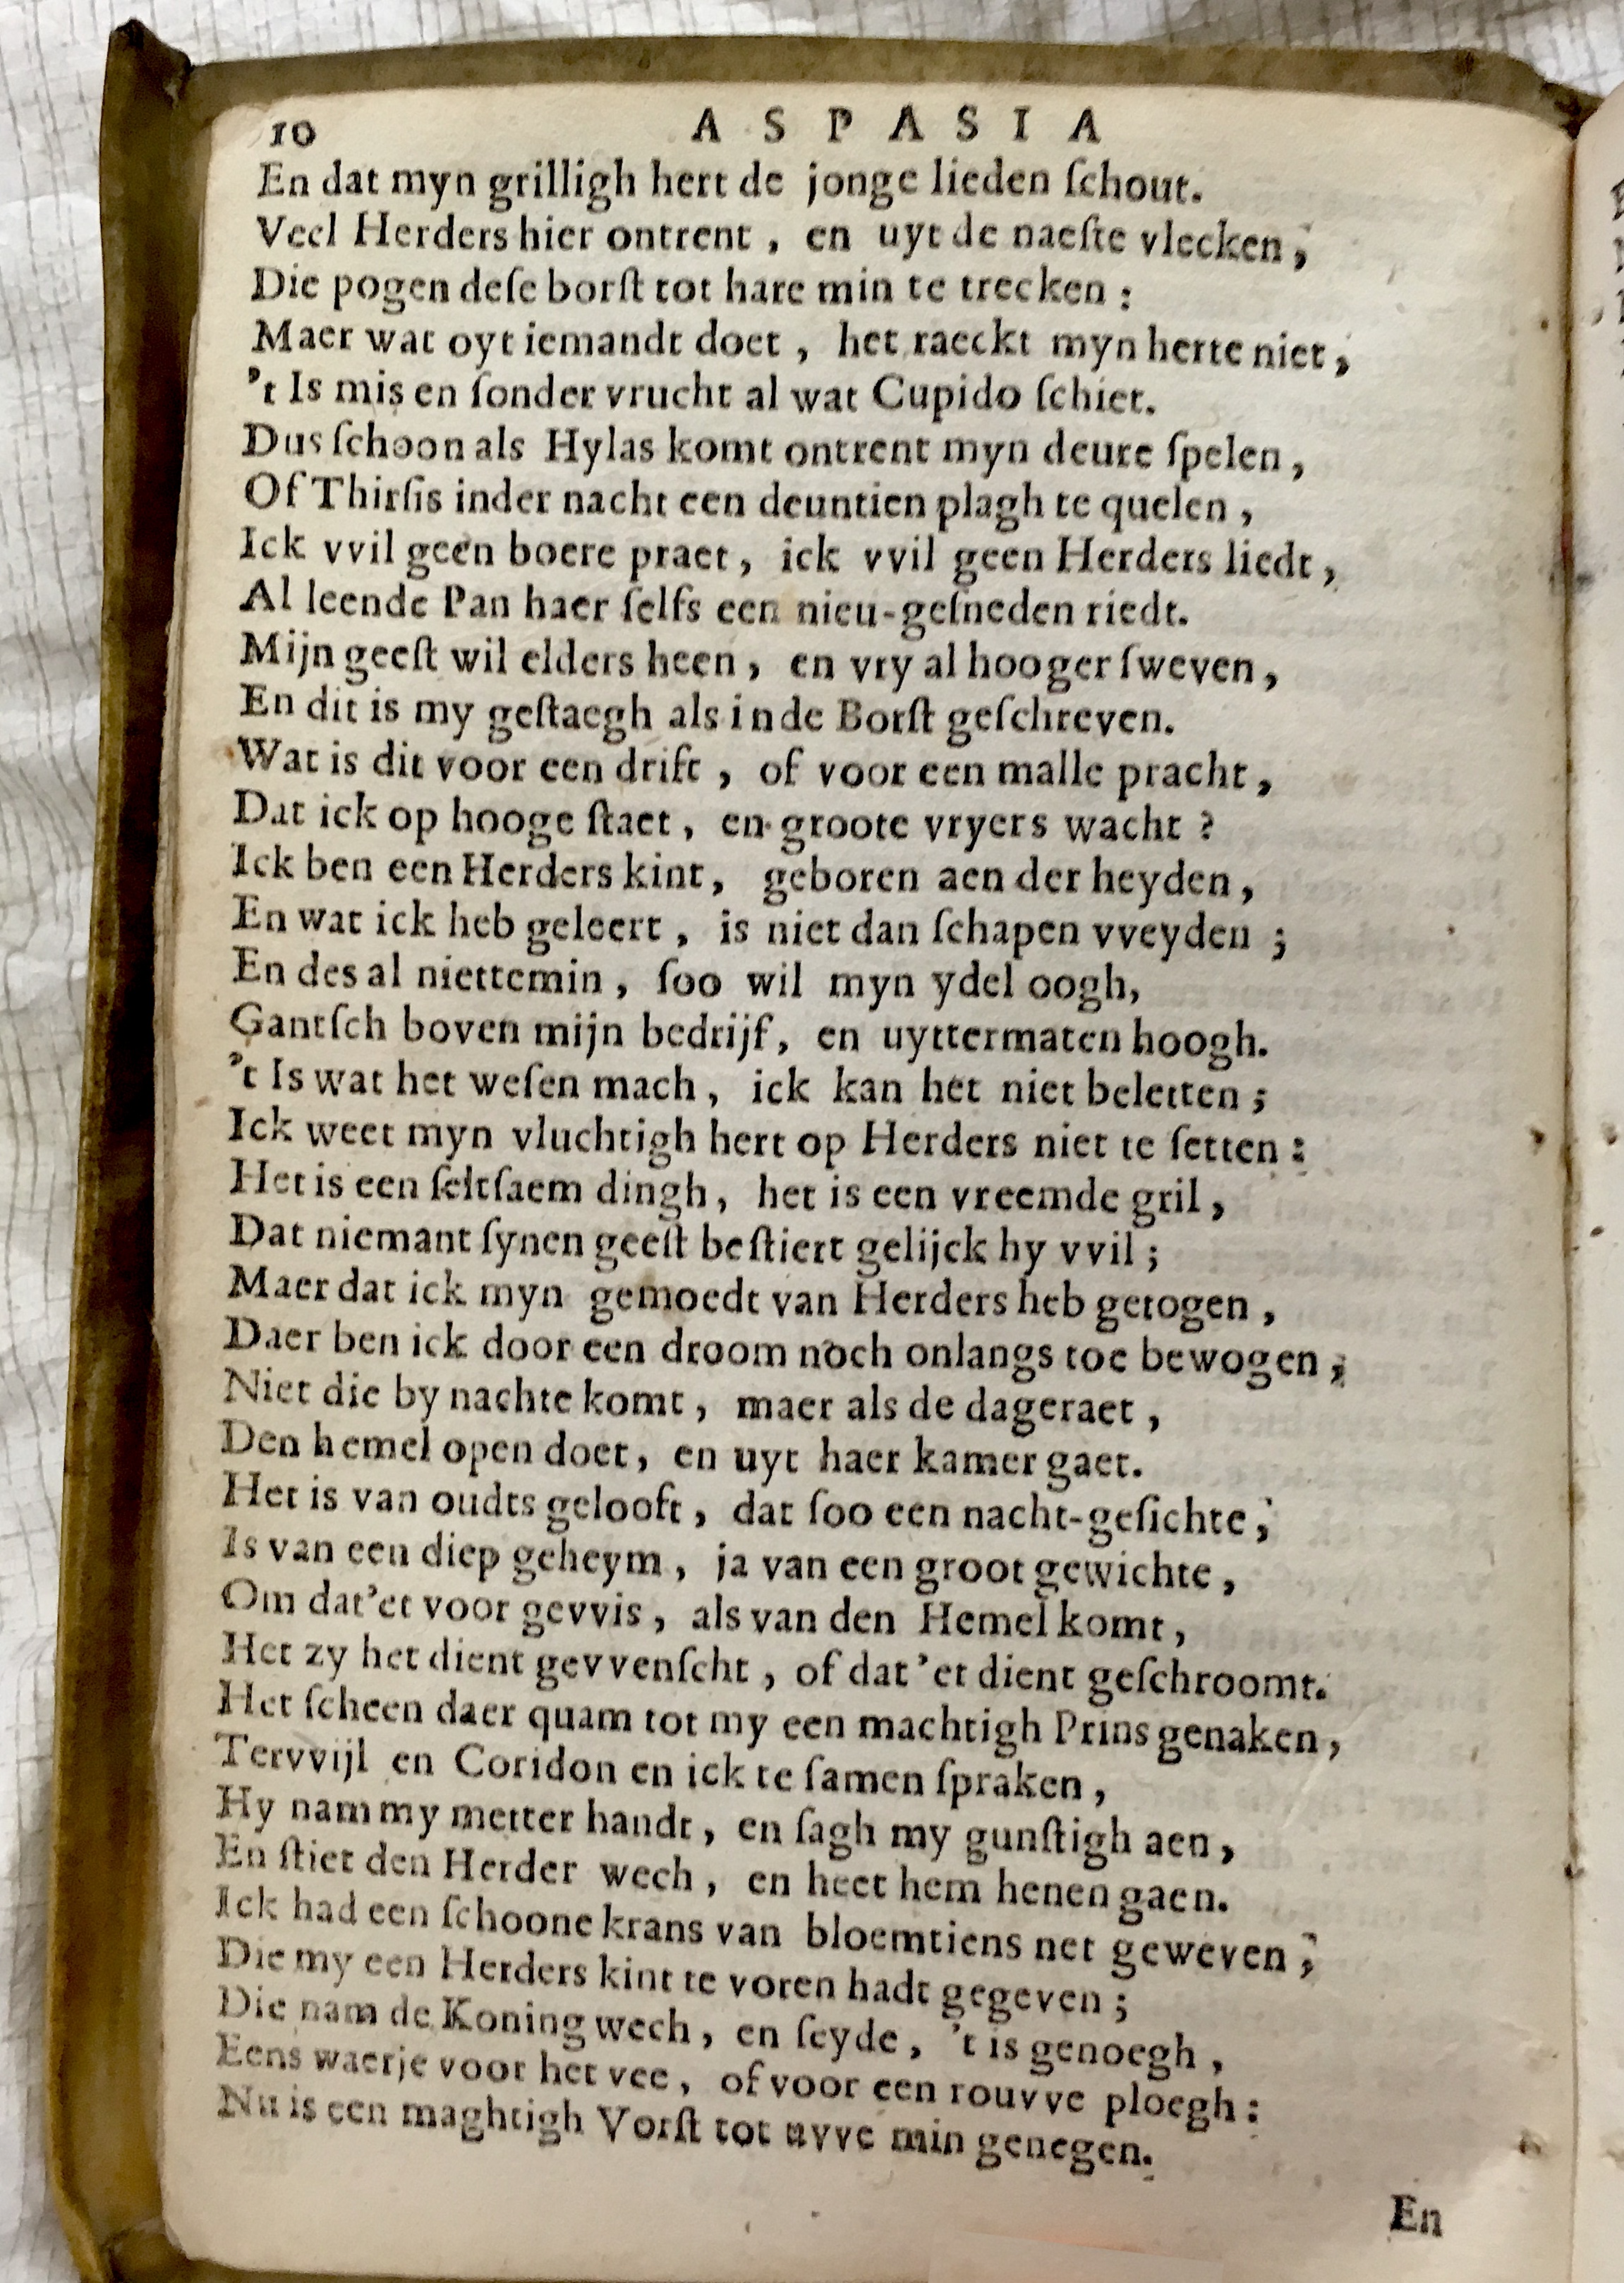 10 ASPASIA
En dat myn grilligh hert de jonge lieden ſchout.
Veel Herders hier ontrent, en uyt de naeſte vlecken,
Die pogen deſe borſt tot hare min te trecken:
Maer wat oyt iemandt doet, het raeckt myn herte niet,
't Is mis en ſonder vrucht al wat Cupido ſchiet.
Dus ſchoon als Hylas komt ontrent myn deure ſpelen,
Of Thirſis inder nacht een deuntien plagh te quelen,
Ick vvil geen boere praet, ick vvil geen Herders liedt,
Al leende Pan haer ſelfs een nieu-geſneden riedt.
Mijn geeſt wil elders heen, en vry al hooger ſweven,
En dit is my geſtaegh als inde Borſt geſchreven.
Wat is dit voor een drift, of voor een malle pracht,
Dat ick op hooge ſtaet, en groote vryers wacht?
Ick ben een Herders kint, geboren aen der heyden,
En wat ick heb geleert, is niet dan ſchapen vveyden;
En des al niettemin, ſoo wil myn ydel oogh,
Gantſch boven mijn bedrijf, en uyttermaten hoogh.
't Is wat het weſen mach, ick kan het niet beletten;
Ick weet myn vluchtigh hert op Herders niet te ſetten:
Het is een ſeltſaem dingh, het is een vreemde gril,
Dat niemant ſynen geeſt beſtiert gelijck hy vvil;
Maer dat ick myn gemoedt van Herders heb getogen,
Daer ben ick door een droom noch onlangs toe bewogen,
Niet die by nachte komt, maer als de dageraet,
Den hemel open doet, en uyt haer kamer gaet.
Het is van oudts gelooft, dat ſoo een nacht-geſichte,
Is van een diep geheym, ja van een groot gewichte,
Om dat'et voor gevvis, als van den Hemel komt,
Het zy het dient gevvenſcht, of dat'et dient geſchroomt.
Het ſcheen daer quam tot my een machtigh Prins genaken,
Tervvijl en Coridon en ick te ſamen ſpraken,
Hy nam my metter handt, en ſagh my gunſtigh aen,
En ſtiet den Herder wech, en heet hem henen gaen.
Ick had een ſchoone krans van bloemtiens net geweven,
Die my een Herders kint te voren hadt gegeven;
Die nam de Koning wech, en ſeyde, 't is genoegh,
Eens waerje voor het vee, of voor een rouvve ploegh:
Nu is een maghtigh Vorſt tot uvve min genegen.
En